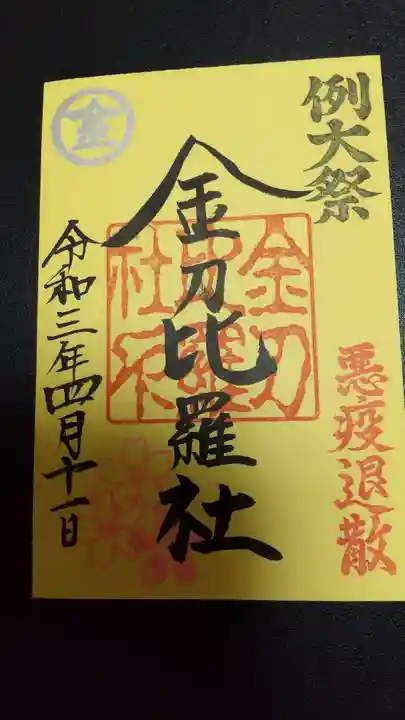 例大祭
悪疫退散
金刀比羅社
金刀比羅社印
令和三年四月十一日
金